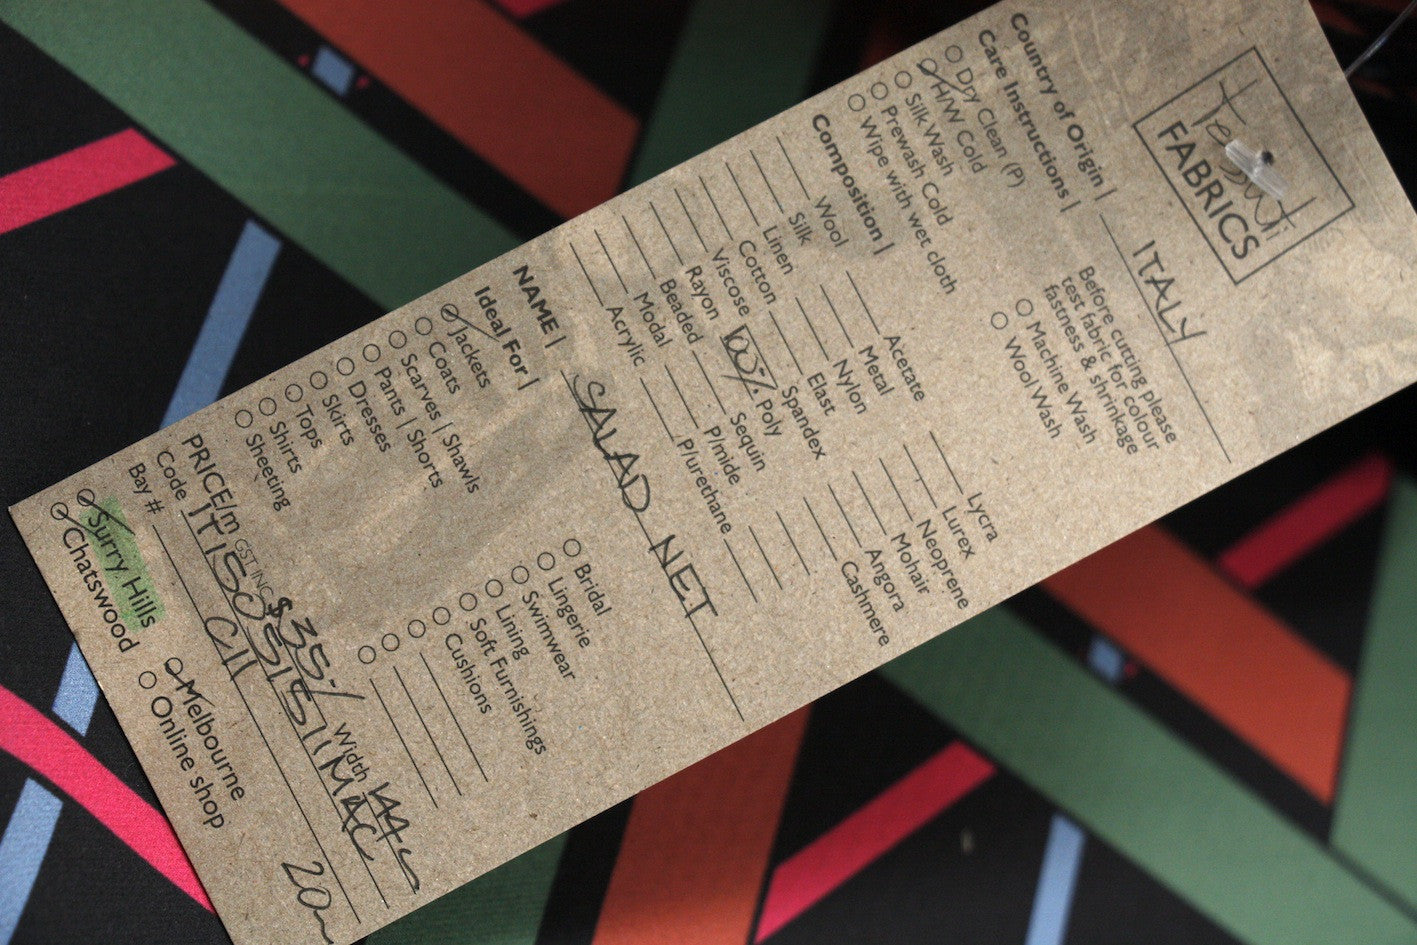 Tessuti
FABRICS
Country of Origin | ITALY
Care Instructions |
Dry Clean (P)
H/W Cold
Silk Wash
Prewash Cold
Wipe with wet cloth
Before cutting please
test fabric for colour
fastness & shrinkage
Machine Wash
Wool Wash
Composition |
Wool
Silk
Linen
Cotton
Viscose
Rayon
Beaded
Modal
Acrylic
Acetate
Metal
Nylon
Elast
Spandex
100% Poly
Sequin
P/mide
P/urethane
Lycra
Lurex
Neoprene
Mohair
Angora
Cashmere
NAME | SALAD NET
Ideal For |
Jackets
Coats
Scarves | Shawls
Pants | Shorts
Dresses
Skirts
Tops
Shirts
Sheeting
Bridal
Lingerie
Swimwear
Lining
Soft Furnishings
Cushions
PRICE/m GST INC $35.-/ Width 144c
Code
Bay # C11
20m
Surry Hills
Chatswood
Melbourne
Online shop